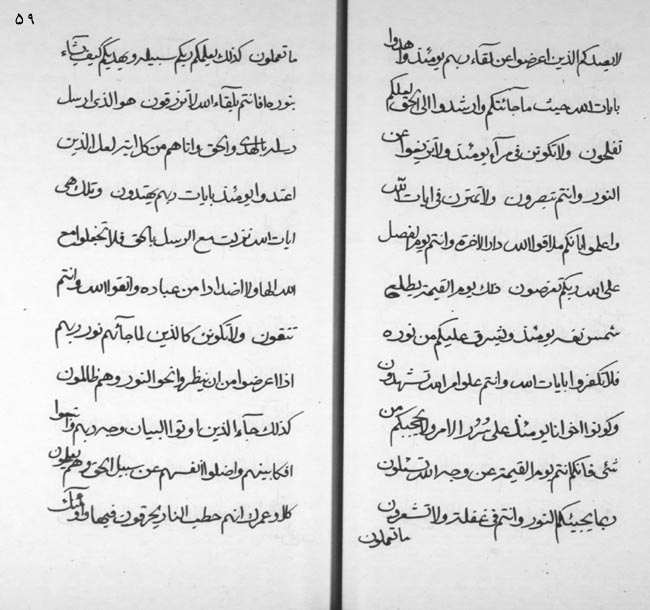 ٥٩
لا يصدكم الذين اعرضوا عن لقاء ربهم يومئذ وهدوا
بايات الله حيث ما جائتكم وارشدوا الى الحق لعلكم
تفلحون ولا تكونن في مرآء يومئذ ولا تزيغوا عن
النور وانتم تبصرون ولا تمترن في ايات الله
واعلموا بانكم ملاقوا الله دار الاخرة وانتم يوم الفصل
على الله ربكم تعرضون ذلك يوم القيمة يطلع
شمس نفسه يومئذ وتشرق عليكم من نوره
فلا تكفروا بايات الله وانتم على امر الله تشهدون
وكونوا اخوانا يومئذ على سرر الامر ولا يحجبكم من
شئ فانكم انتم يوم القيمة عن وجه الله تسئلون
بما يجيئكم النور وانتم في غفلة ولا تشعرون
ما تعملون
ما تعملون كذلك يعلمكم ربكم سبيله ويهديكم كيف يشاء
بنوره فانتم بلقاء الله لا توقنون هو الذي ارسل
رسله بالهدى والحق واتاهم من كل اية لعل الذين
اعتدوا يومئذ بايات ربهم يهتدون وتلك هي
ايات الله نزلت مع الرسل بالحق فلا تجعلوا مع
الله الها ولا اضدادا من عباده واتقوا الله وانتم
تتقون ولا تكونن كالذين لما جائهم نور ربهم
اذا اعرضوا من ان ينظروا نحو النور وهم ظالمون
كذلك جاء الذين اوتوا البيان وجه ربهم واتخذوا
افكا بينهم واضلوا انفسهم عن سبيل الحق وهم يعلمون
كلا وعمرك انهم حطب النار يحرقون فيها واولئك